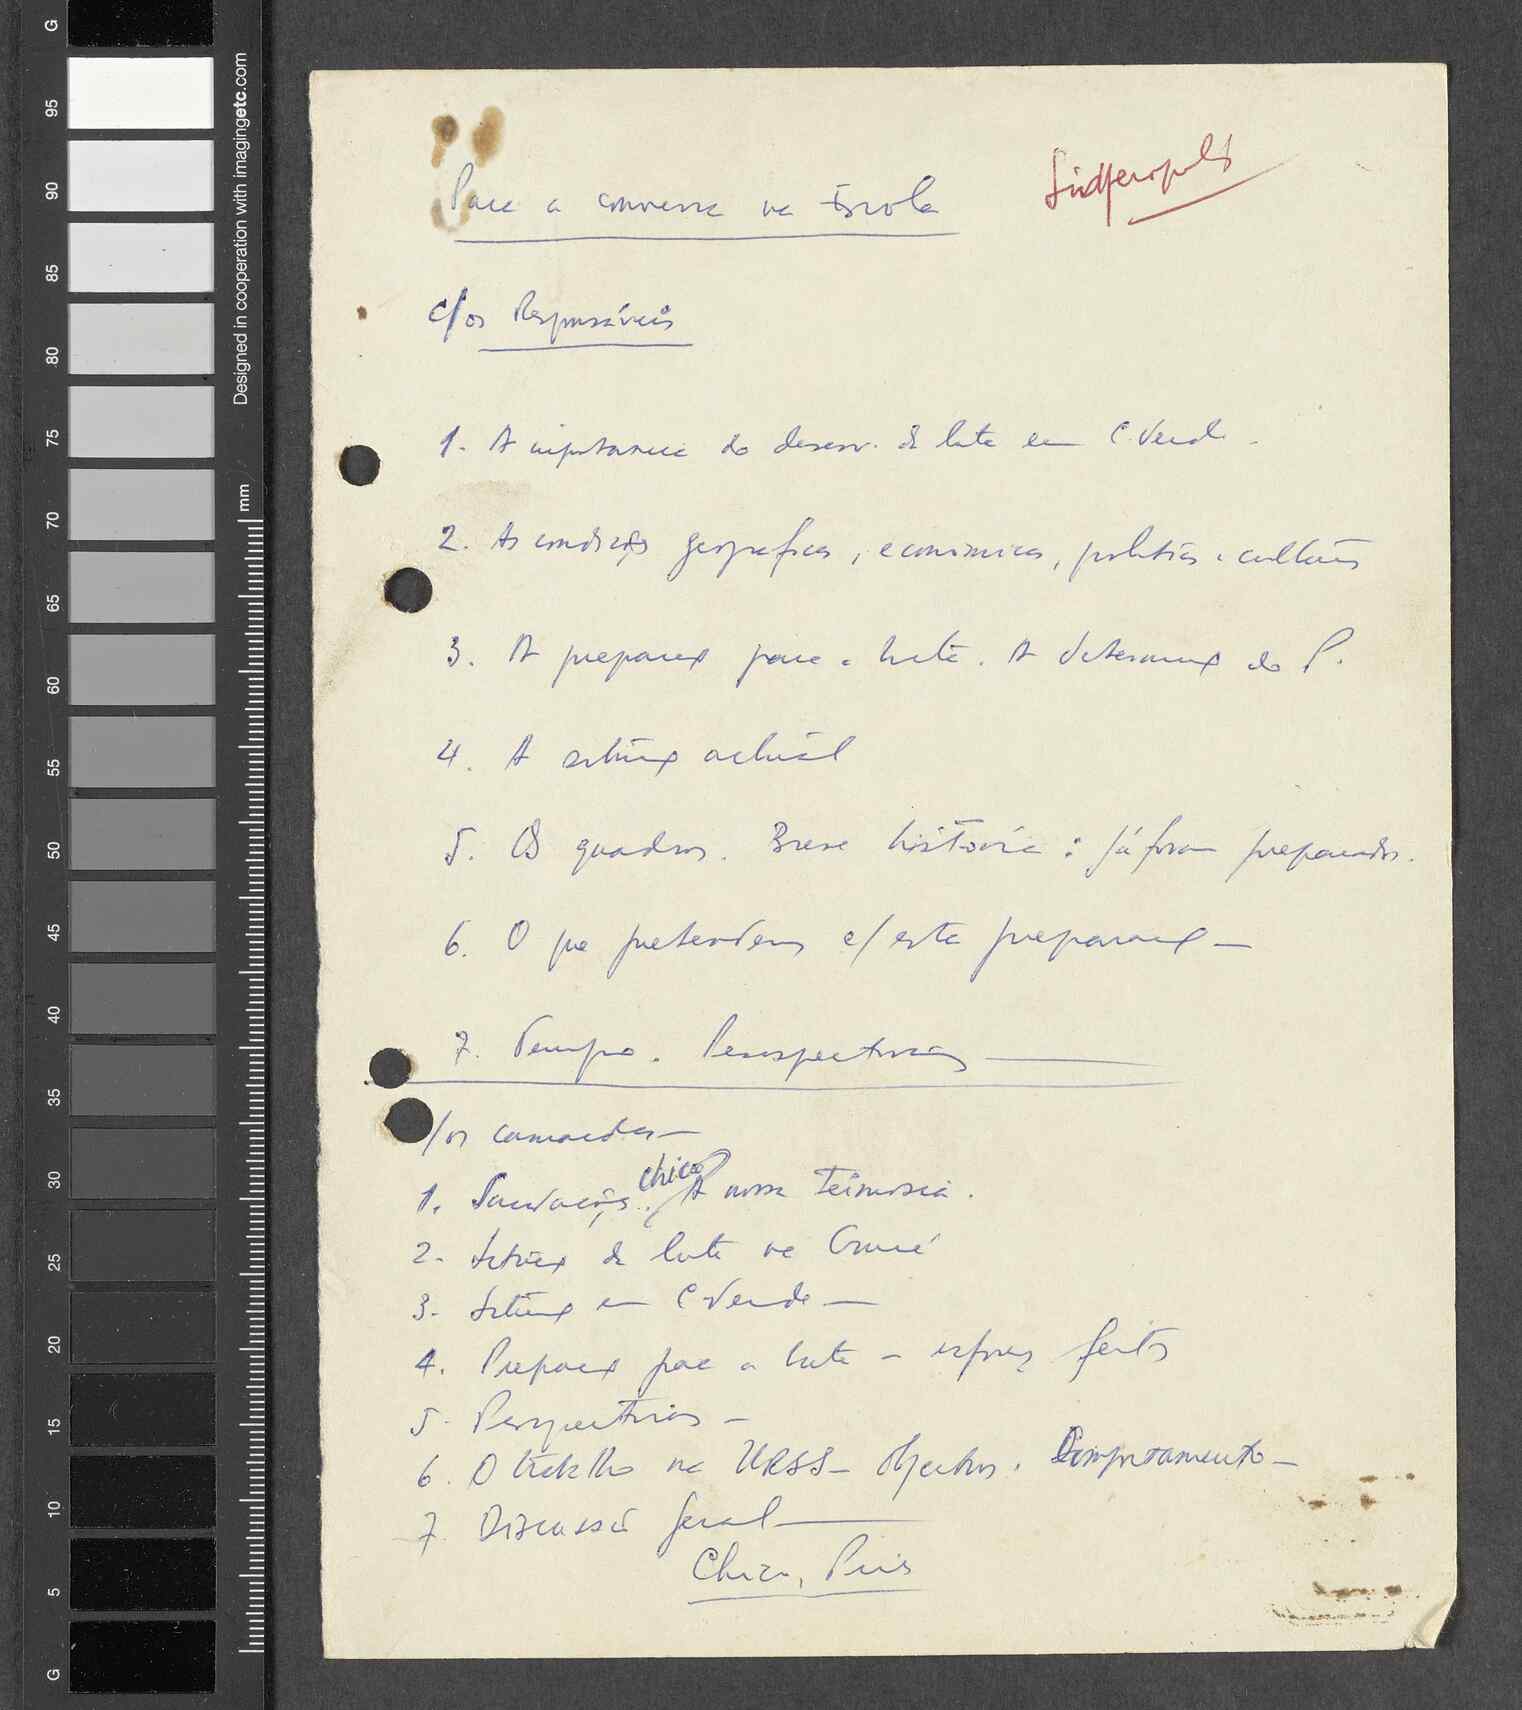 Para a conversa na Escola
Sindferopols
c/os Responsáveis
1. A importancia do desenv. da luta em C. Verde.
2. As condições geograficas, economicas, politicas e culturais
3. A preparaç para a luta. A determinaç do P.
4. A situaç actual
5. Os quadros. Breve história: já foram preparados.
6. O que pretendemos c/ esta preparaç—
7. Tempo. Perspectivas
/os camaradas—
chico
1. Saudações. A nossa teimosia.
2- Situaç da luta na Guiné
3- Situaç em C. Verde—
4. Preparaç para a luta — esforços feitos
5- Perspectivas —
6. O trabalho na URSS— Objectivos. Comportamento—
7. Discussão geral
Chico, Pires
G
95
90
85
80
75
70
65
60
55
50
45
40
35
30
25
20
15
10
5
G
Designed in cooperation with imagingetc.com
mm